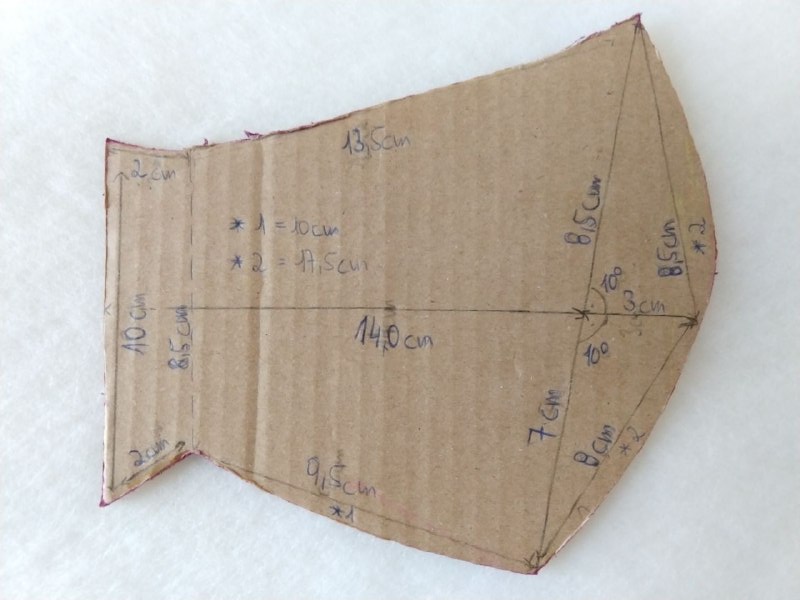 2 cm
13,5cm
* 1 = 10cm
* 2 = 17,5cm
10cm
8,5cm
14,0cm
8,5cm
8,5cm
* 2
10°
3cm
10°
7cm
8cm
* 2
2cm
9,5cm
*1